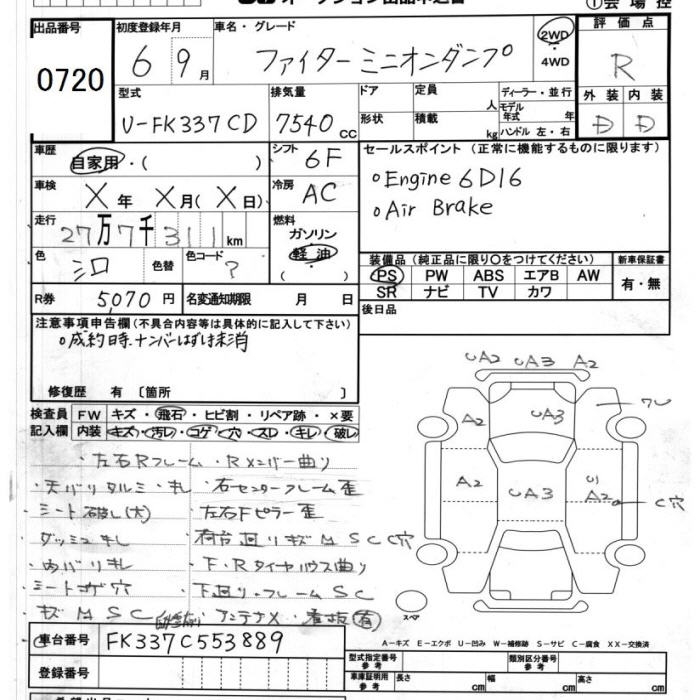 オークション出品申込書
①会場控
出品番号 0720
初度登録年月 6 9月
車名・グレード ファイター ミニオンダンプ
2WD
・4WD
評価点 R
型式 U-FK337CD
排気量 7540cc
ドア
形状
定員 人
積載 kg
ディーラー・並行
モデル年式 年
ハンドル 左・右
外装 内装
D D
車歴 自家用・( )
シフト 6F
セールスポイント (正常に機能するものに限ります)
車検 X年 X月(X日)
冷房 AC
○Engine 6D16
○Air Brake
走行 27万7千311km
燃料
ガソリン
軽油
( )
色 シロ
色替
色コード ?
装備品 (純正品に限り○をつけてください)
新車保証書
PS PW ABS エアB AW
SR ナビ TV カワ
有・無
R券 5,070円
名変通知期限 月 日
後日品
注意事項申告欄(不具合内容等は具体的に記入して下さい)
○成約時、ナンバーはずけ未消
修復歴 有 〔箇所 〕
検査員 FW キズ・飛石・ヒビ割・リペア跡・×要
記入欄 内装 キズ・汚レ・コゲ・穴・スレ・キレ・破レ
・左右Rフレーム・Rメンバー曲り
・天バリタルミ・キレ・右センターフレーム歪
・シート破レ(大)・左右Fピラー歪
・ダッシュキレ・荷台廻りキズMSCC穴
・内バリキレ・F・Rタイヤハウス曲り
・シートコゲ穴・下廻り・フレームSC
・キズMSC・アンテナX・看板(有)
UA2 UA3 A2
A2 UA3 ワレ
A2 UA3 UA2 C穴
スペア
車台番号 FK337C553889
A-キズ E-エクボ U-凹み W-補修跡 S-サビ C-腐食 XX-交換済
登録番号
型式指定番号 参考
類別区分番号 参考
車庫証明用 参考
長さ cm 幅 cm 高さ cm